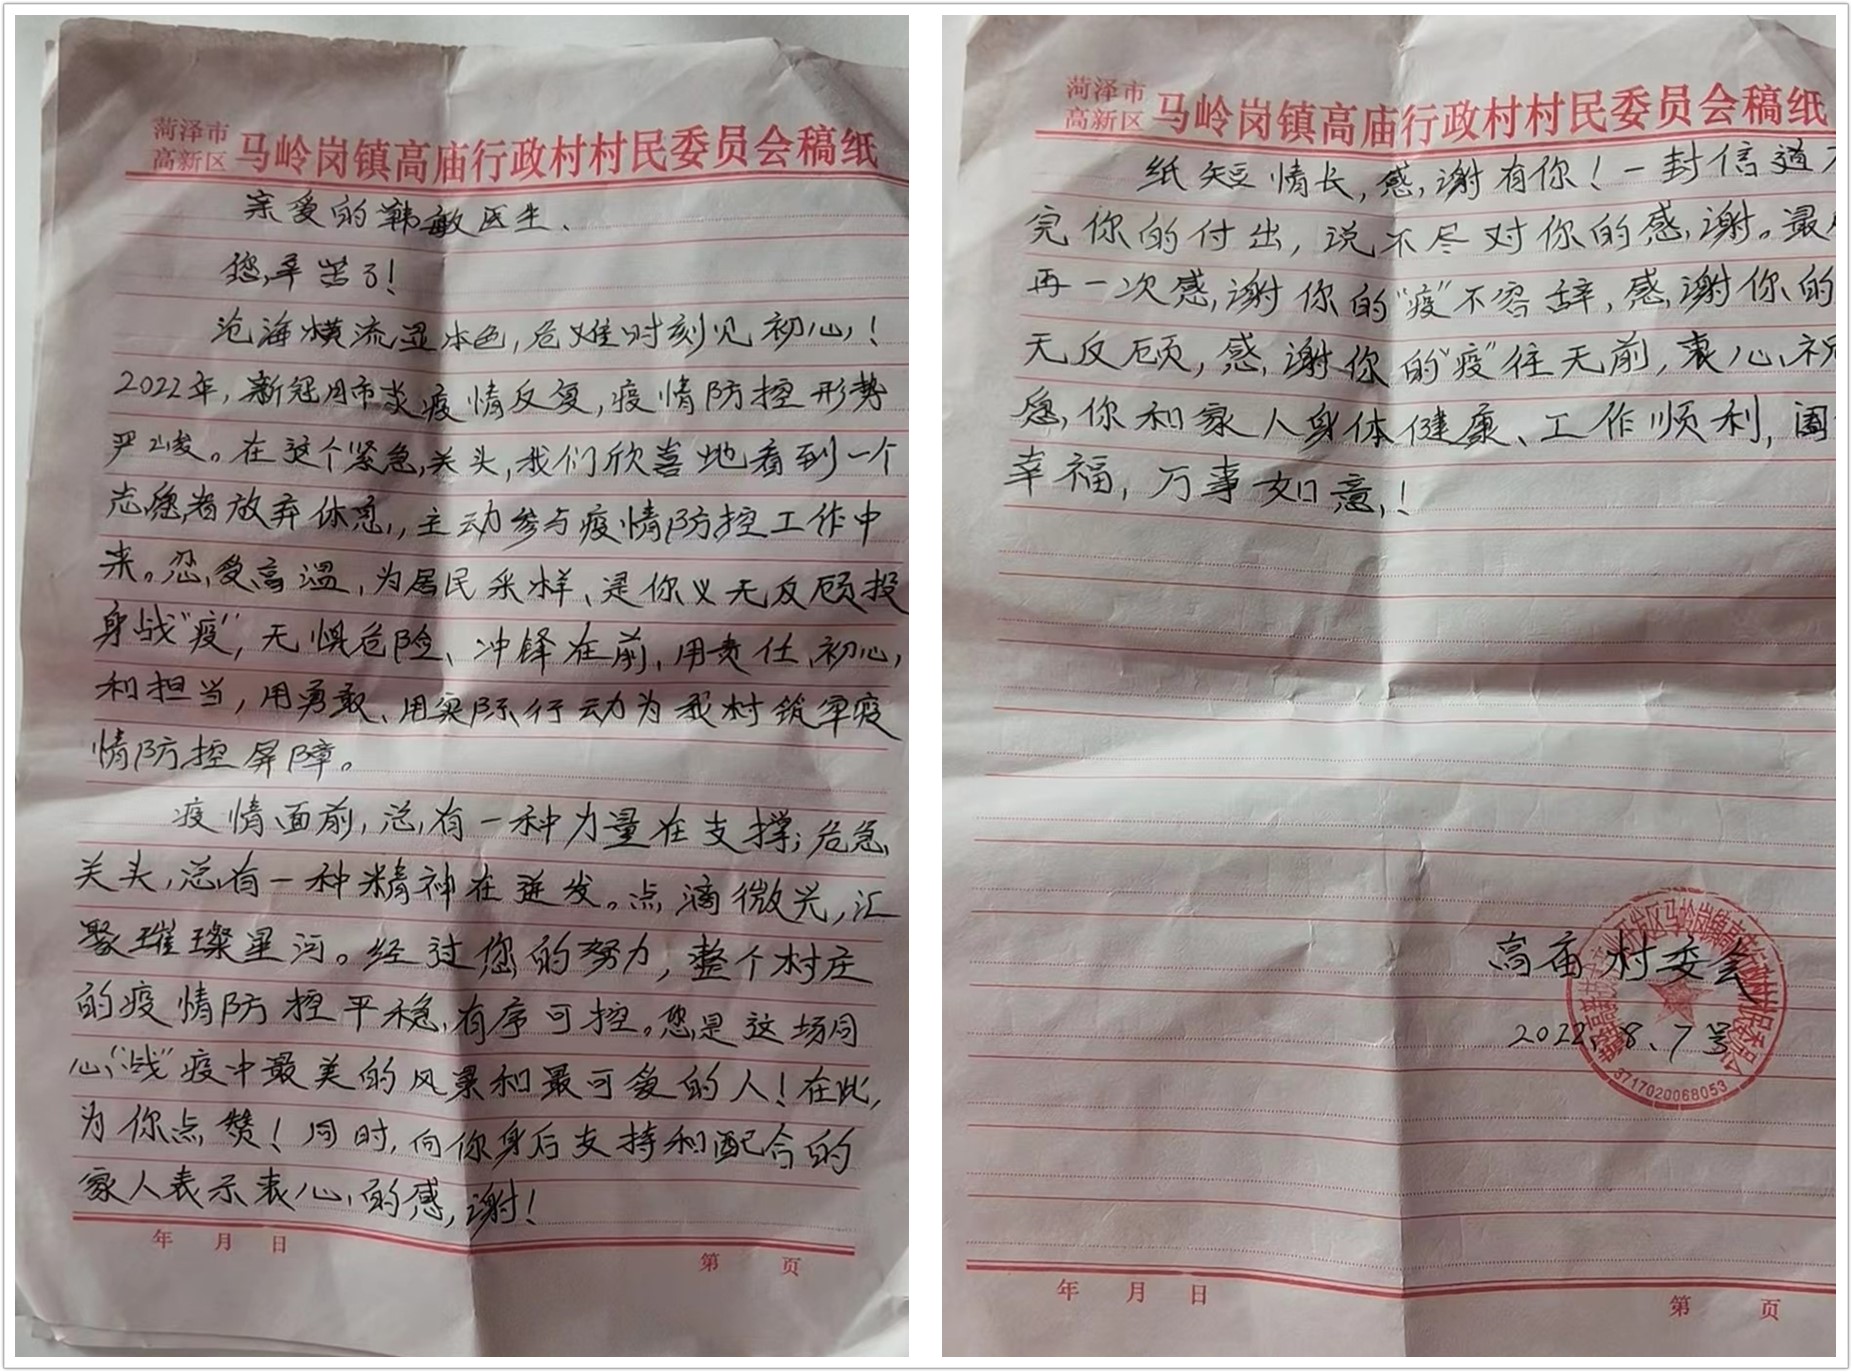 菏泽市
高新区 马岭岗镇高庙行政村村民委员会稿纸
亲爱的韩敏医生、
您辛苦了!
沧海横流显本色,危难时刻见初心!
2022年,新冠肺炎疫情反复,疫情防控形势
严峻。在这个紧急关头,我们欣喜地看到一个
志愿者放弃休息,主动参与疫情防控工作中
来。忍受高温,为居民采样、是你义无反顾投
身战“疫”,无惧危险、冲锋在前、用责任、初心
和担当,用勇敢、用实际行动为我村筑牢疫
情防控屏障。
疫情面前,总有一种力量在支撑;危急
关头,总有一种精神在迸发。点滴微光,汇
聚璀璨星河。经过您的努力,整个村庄
的疫情防控平稳,有序可控。您是这场同
心“战”疫中最美的风景和最可爱的人!在此,
为你点赞!同时,向你身后支持和配合的
家人表示衷心的感谢!
年 月 日
第 页
菏泽市
高新区 马岭岗镇高庙行政村村民委员会稿纸
纸短情长,感谢有你!一封信道
完你的付出,说不尽对你的感谢。最
再一次感谢你的“疫”不容辞,感谢你的
无反顾,感谢你的“疫”往无前,衷心祝
愿你和家人身体健康、工作顺利,阖
幸福,万事如意!
高庙村委会
2022.8.7号
3717020068053
年 月 日
第 页